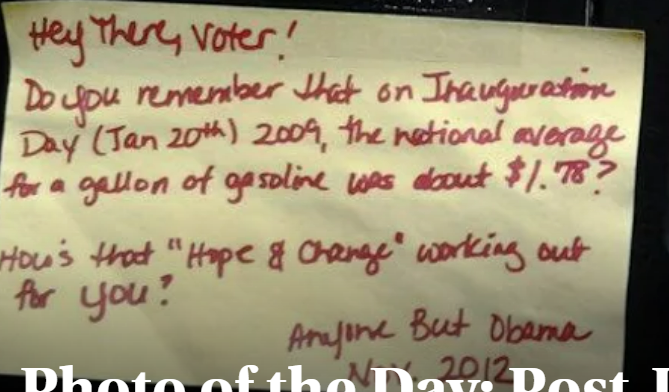 Hey There, Voter!
Do you remember that on Inauguration
Day (Jan 20th) 2009, the national average
for a gallon of gasoline was about $1.78?
How's that "Hope & Change" working out
for you?
Anyone But Obama
Nov. 2012
Photo of the Day: Post-I